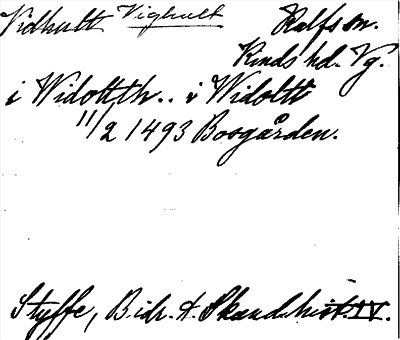 Vidhult Vighult Kalfs sn.
Kinds hd. Vg.
i Widottth.. i Widoltt
11/2 1493 Bosgården.
Styffe, Bidr. t. Skand. hist. IV.